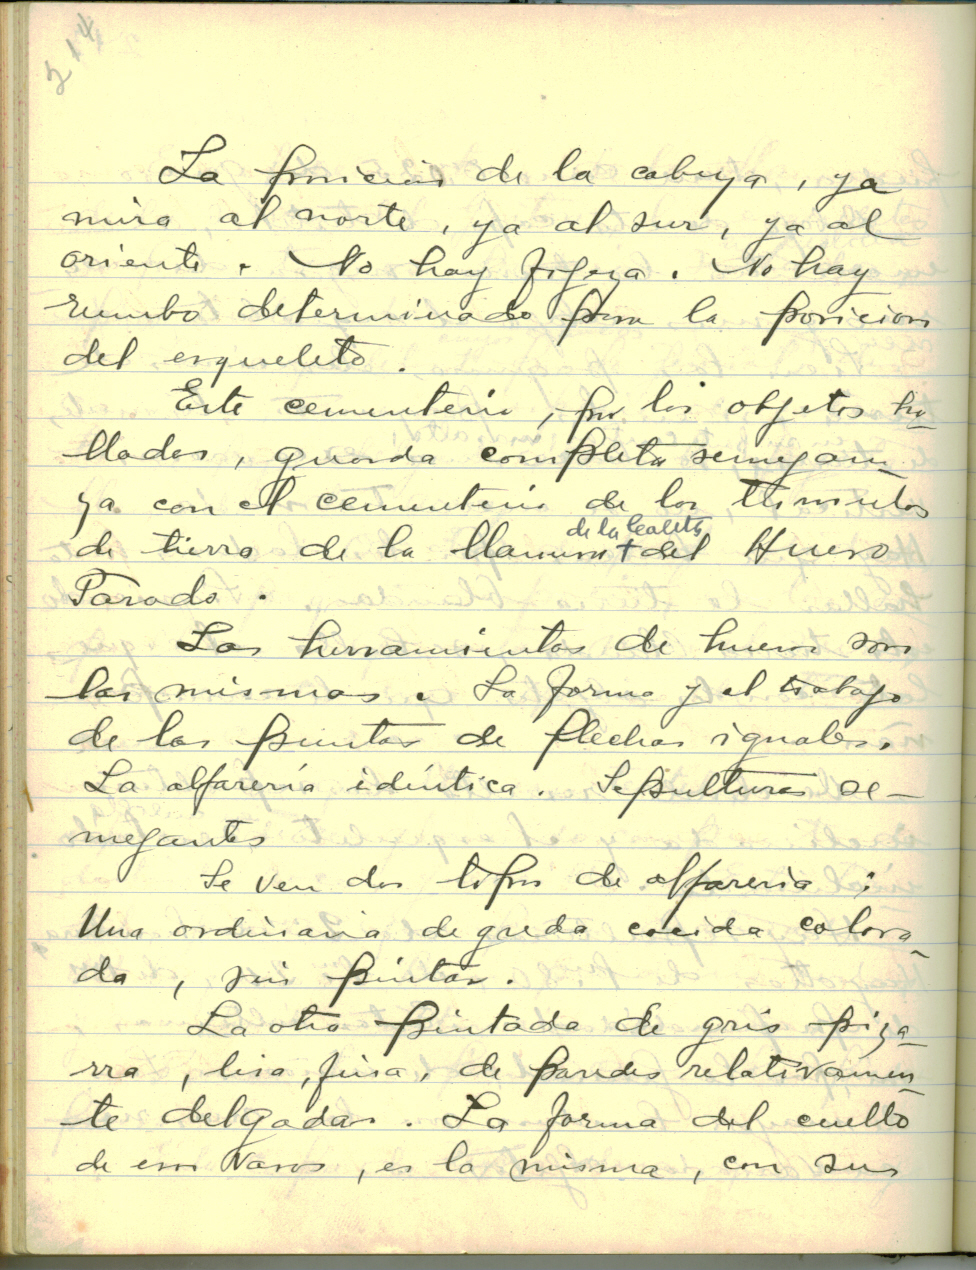 214
La posicion de la cabeza, ya
mira al norte, ya al sur, ya al
oriente. No hay figeza. No hay
rumbo determinado para la posicion
del esqueleto.
Este cementerio, por los objetos ha-
llados, guarda completa semejan-
za con el cementerio de los túmulos
de la Caleta
de tierra de la llanura + del Hueso
Parado.
Las herramientas de hueso son
las mismas. La forma y el trabajo
de las puntas de flechas iguales.
La alfarería idéntica. Sepulturas se-
megantes
Se ven dos tipos de alfareria;
Una ordinaria de greda cocida colora-
da, sin pintar.
La otra pintada de gris piza-
rra, lisa, fina, de paredes relativamen-
te delgadas. La forma del cuello
de esos vasos, es la misma, con sus